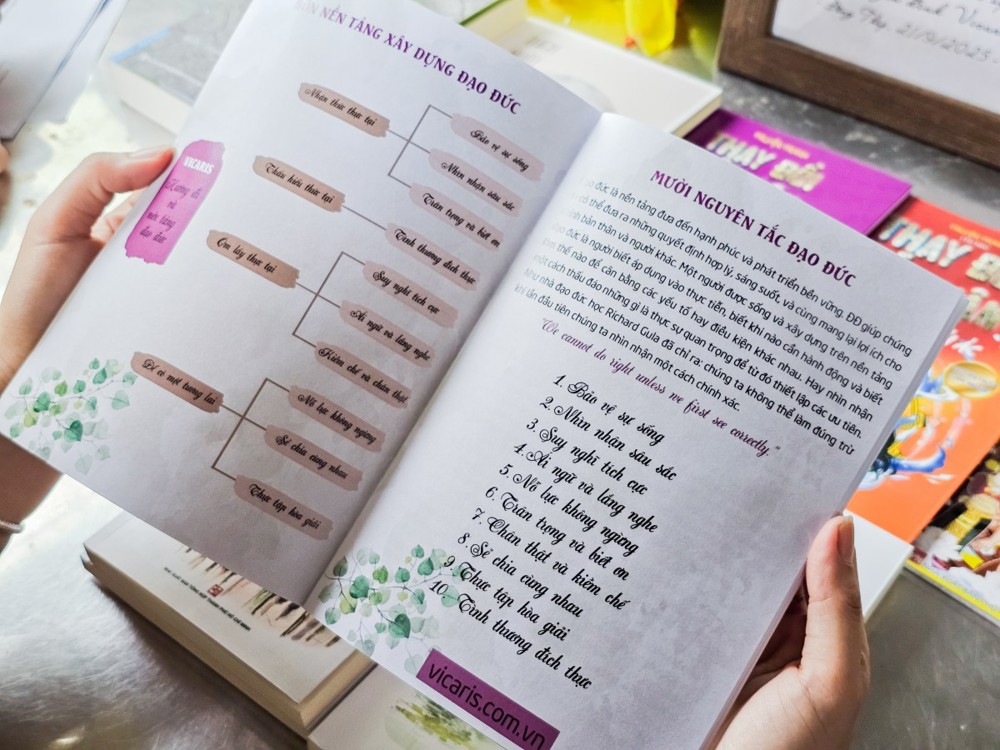 NỀN TẢNG XÂY DỰNG ĐẠO ĐỨC
VICARIS
Hướng đi
và
nền tảng
đạo đức
Nhận thức thực tại
Thấu hiểu thực tại
Ôm lấy thực tại
Để có một tương lai
Bảo vệ sự sống
Nhìn nhận sâu sắc
Trân trọng và biết ơn
Tình thương đích thực
Suy nghĩ tích cực
Ái ngữ và lắng nghe
Kiềm chế và chân thật
Nỗ lực không ngừng
Sẻ chia cùng nhau
Thực tập hòa giải
MƯỜI NGUYÊN TẮC ĐẠO ĐỨC
đức là nền tảng đưa đến hạnh phúc và phát triển bền vững. ĐĐ giúp chúng
có thể đưa ra những quyết định hợp lý, sáng suốt, và cùng mang lại lợi ích cho
bản thân và người khác. Một người được sống và xây dựng trên nền tảng
đức là người biết áp dụng vào thực tiễn, biết khi nào cần hành động và biết
thế nào để cân bằng các yếu tố hay điều kiện khác nhau. Hãy nhìn nhận
một cách thấu đáo những gì là thực sự quan trọng để từ đó thiết lập các ưu tiên.
Như nhà đạo đức học Richard Gula đã chỉ ra: chúng ta không thể làm đúng trừ
khi lần đầu tiên chúng ta nhìn nhận một cách chính xác.
"We cannot do right unless we first see correctly."
1. Bảo vệ sự sống
2. Nhìn nhận sâu sắc
3. Suy nghĩ tích cực
4. Ái ngữ và lắng nghe
5. Nỗ lực không ngừng
6. Trân trọng và biết ơn
7. Chân thật và kiềm chế
8. Sẻ chia cùng nhau
9. Thực tập hòa giải
10. Tình thương đích thực
vicaris.com.vn
THAY ĐỔI
THAY ĐỔI
21/9/2023